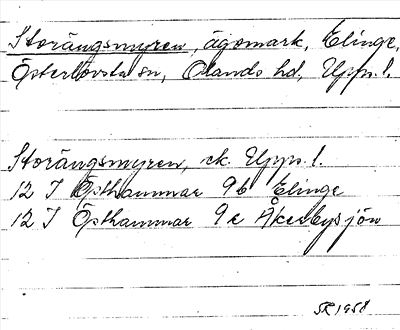 Storängsmyren, ägomark, Elinge,
Österlövsta sn, Olands hd, Upps. l.
Storängsmyren, ek. Upps. l.
12 I Östhammar 9 b Elinge
12 I Östhammar 9 c Åkerbysjön
SR 1958